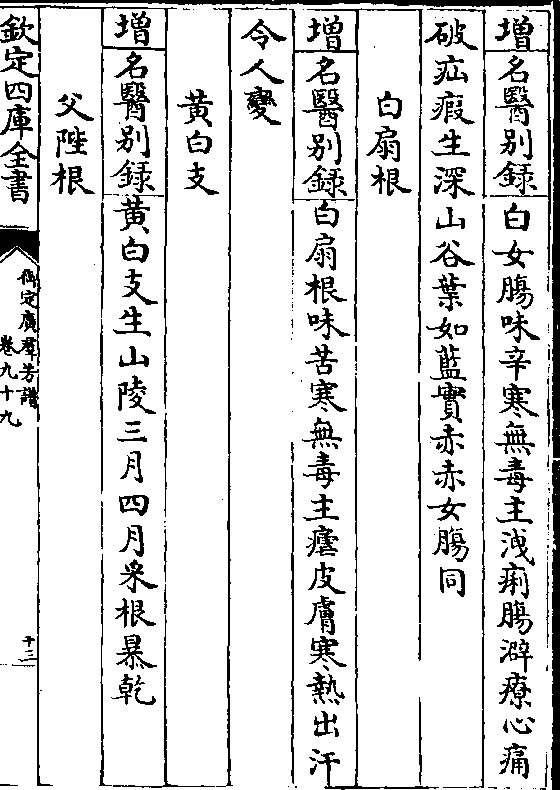 增名醫别錄白女腸味辛寒無毒主洩痢腸澼療心痛
破疝瘕生深山谷葉如藍實赤赤女腸同
白扇根
增名醫别錄白扇根味苦寒無毒主瘧皮膚寒熱出汗
令人變
黄白支
增名醫别錄黄白支生山陵三月四月采根暴乾
父陛根
欽定四庫全書
御定廣羣芳譜
卷九十九
十三